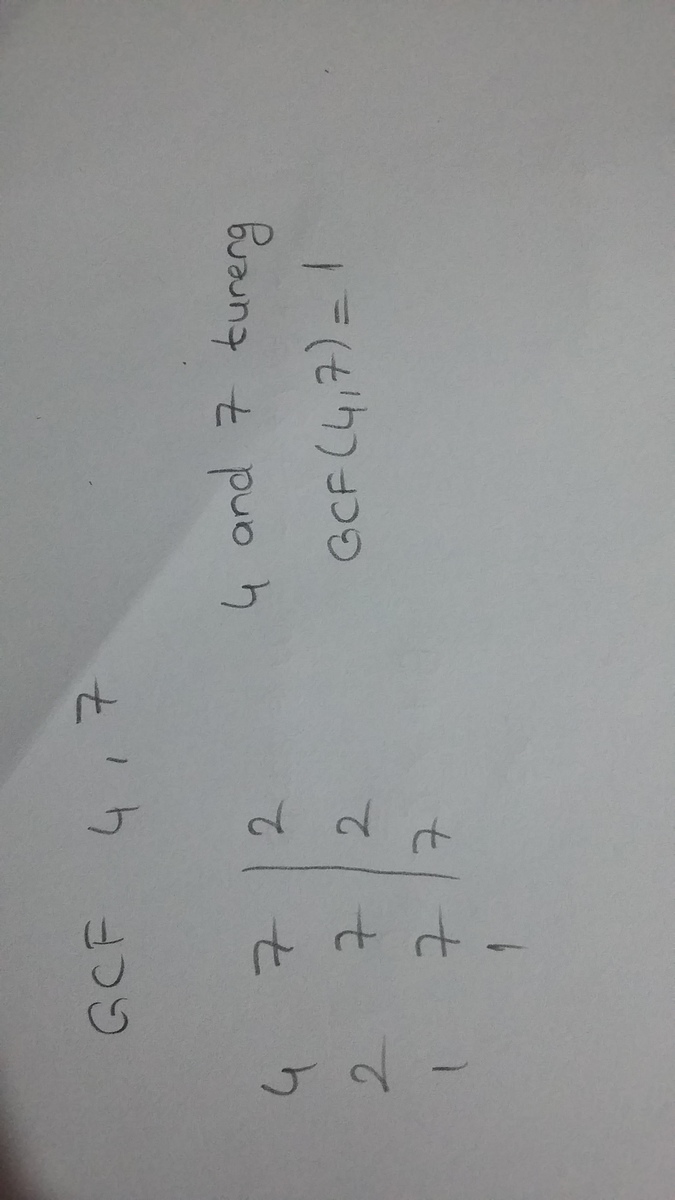 GCF 4, 7
4 7 | 2
2 7 | 2
1 7 | 7
1
4 and 7 tureng
GCF (4,7) = 1